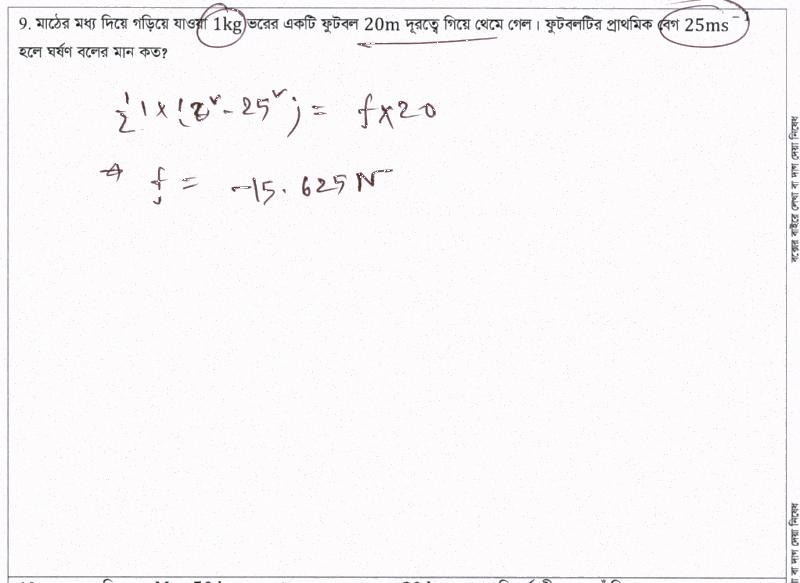 9. মাঠের মধ্য দিয়ে গড়িয়ে যাওয়া 1kg ভরের একটি ফুটবল 20m দূরত্বে গিয়ে থেমে গেল। ফুটবলটির প্রাথমিক বেগ 25ms⁻¹
হলে ঘর্ষণ বলের মান কত?
½ 1 × (0² - 25²) = f × 20
⇒ f = -15.625 N
বক্সের বাইরে লেখা বা দাগ দেয়া নিষেধ
বা দাগ দেয়া নিষেধ